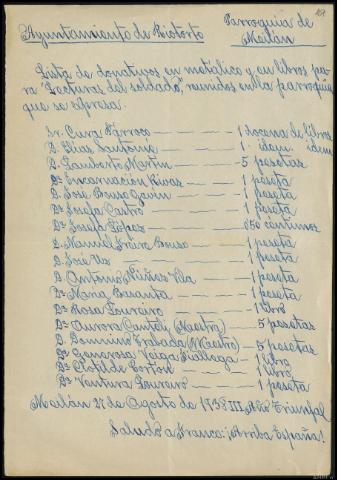 Ayuntamiento de Riotorto
Parroquia de
Meilán
Lista de donativos en metálico y en libros pa-
ra "Lecturas del soldado", reunidos en la parroquia
que se expresa.
Sr. Cura Párroco — 1 docena de libros
D. Elías Santomé — 1 idem idem
D. Lamberto Martin — 5 pesetas
Dª Encarnación Rivas — 1 peseta
D. Jose Bouso — 1 peseta
Dª Josefa Castro — 1 peseta
Dª Josefa López — 0'50 centimos
D. Manuel Bouso — 1 peseta
D. Jose — 1 peseta
D. Antonio Núñez Vila — 1 peseta
Dª María Basanta — 1 peseta
Dª Rosa Loureiro — 1 libro
Dª Aurora (Maestra) — 5 pesetas
D. Dominino Trabada (Maestro) — 5 pesetas
Dª Generosa Veiga — 1 libro
Dª Clotilde — 1 libro
Dª Ventura Loureiro — 1 peseta
Meilán 27 de Agosto de 1938 III Año Triunfal
Saludo a Franco: ¡Arriba España!